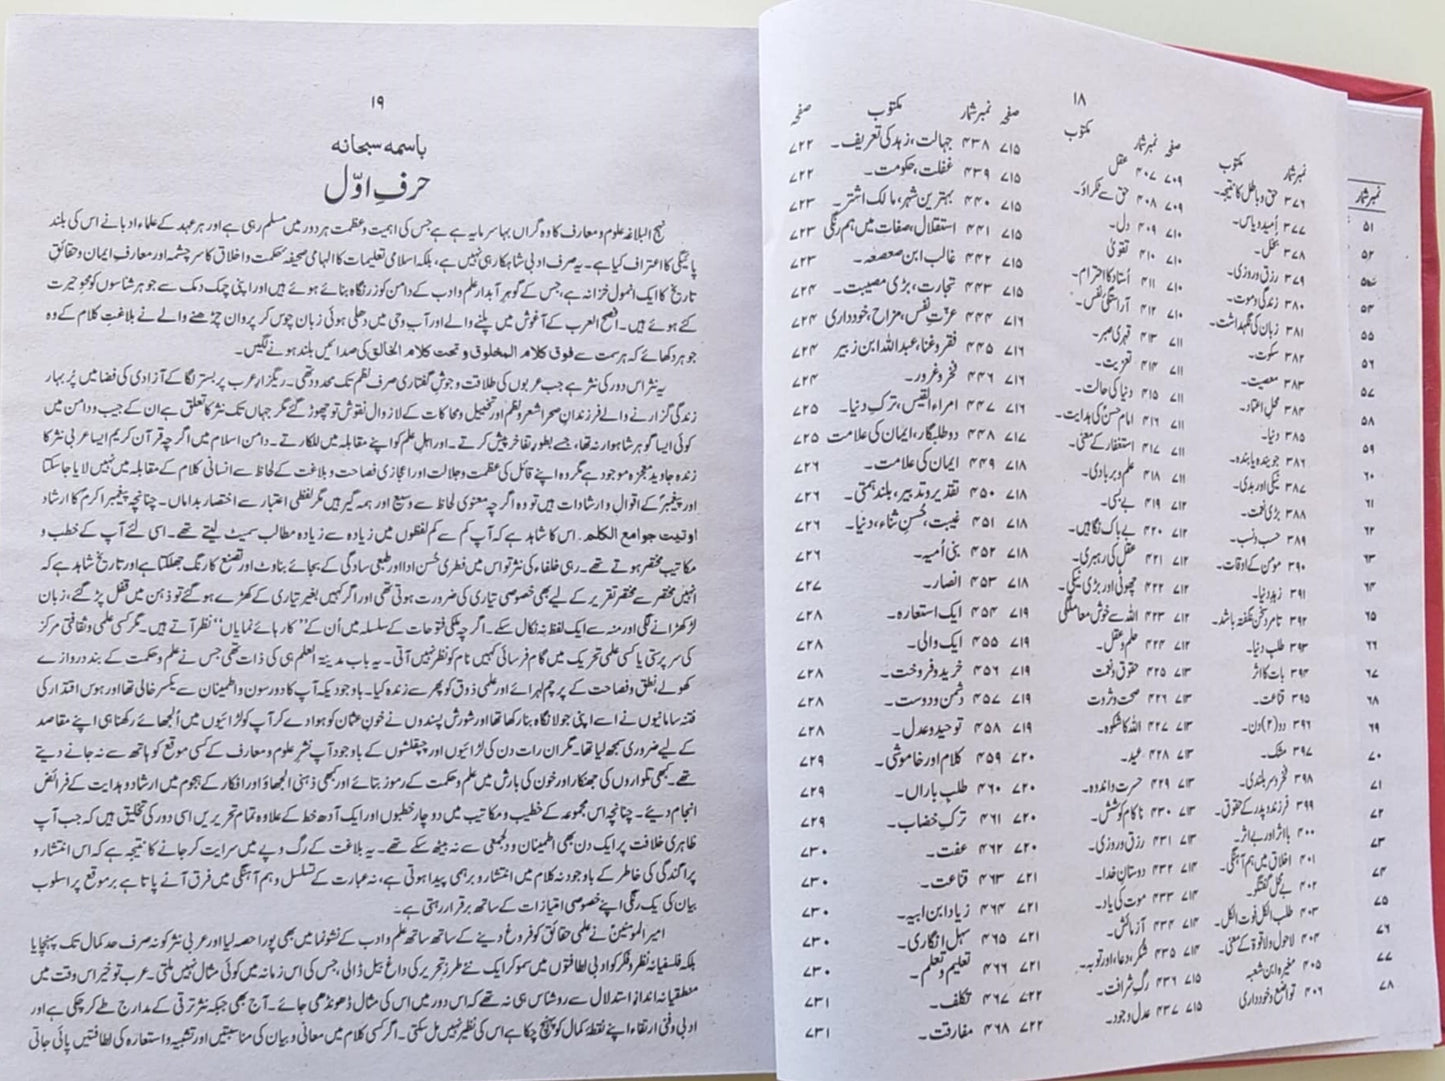 ۱۸
نمبر شمار مکتوب صفحہ نمبر شمار مکتوب صفحہ نمبر شمار مکتوب صفحہ
۳۷۶ حق و باطل کا نتیجہ۔ ۷۰۹ ۴۰۷ عقل ۷۱۵ ۴۳۸ جہالت، زہد کی تعریف۔ ۷۲۲
۳۷۷ اُمید و یاس۔ ۷۰۹ ۴۰۸ حق سے ٹکراؤ۔ ۷۱۵ ۴۳۹ غفلت، حکومت۔ ۷۲۲
۳۷۸ بخل۔ ۷۱۰ ۴۰۹ دل۔ ۷۱۵ ۴۴۰ بہترین شہر، مالک اشتر۔ ۷۲۳
۳۷۹ رزق و روزی۔ ۷۱۰ ۴۱۰ تقویٰ ۷۱۵ ۴۴۱ استقلال، صفات میں ہم رنگی ۷۲۳
۳۸۰ زندگی و موت۔ ۷۱۰ ۴۱۱ اُستاد کا احترام۔ ۷۱۵ ۴۴۲ غالب ابن صعصعہ۔ ۷۲۳
۳۸۱ زبان کی نگہداشت۔ ۷۱۰ ۴۱۲ آراستگیٔ نفس۔ ۷۱۵ ۴۴۳ تجارت، بڑی مصیبت۔ ۷۲۴
۳۸۲ سکوت۔ ۷۱۱ ۴۱۳ قہری صبر۔ ۷۱۶ ۴۴۴ عزّتِ نفس، مزاح، خودداری ۷۲۴
۳۸۳ معصیت۔ ۷۱۱ ۴۱۴ تعزیت۔ ۷۱۶ ۴۴۵ فقر و غنا، عبداللہ ابن زبیر ۷۲۴
۳۸۴ محلِ اعتماد۔ ۷۱۱ ۴۱۵ دنیا کی حالت۔ ۷۱۶ ۴۴۶ فخر و غرور۔ ۷۲۴
۳۸۵ دنیا۔ ۷۱۱ ۴۱۶ امام حسنؑ کی ہدایت۔ ۷۱۶ ۴۴۷ امراء القیس، ترکِ دنیا۔ ۷۲۵
۳۸۶ جویندہ یا بندہ۔ ۷۱۱ ۴۱۷ استغفار کے معنی۔ ۷۱۷ ۴۴۸ دو طلبگار، ایمان کی علامت ۷۲۵
۳۸۷ نیکی اور بدی۔ ۷۱۱ ۴۱۸ علم و بردباری۔ ۷۱۸ ۴۴۹ ایمان کی علامت۔ ۷۲۶
۳۸۸ بڑی نعمت۔ ۷۱۲ ۴۱۹ بے بسی۔ ۷۱۸ ۴۵۰ تقدیر و تدبیر، بلند ہمتی۔ ۷۲۶
۳۸۹ حسب و نسب۔ ۷۱۲ ۴۲۰ بے باک نگاہیں۔ ۷۱۸ ۴۵۱ غیبت، حُسنِ ثناء، دنیا۔ ۷۲۶
۳۹۰ مومن کے اوقات۔ ۷۱۲ ۴۲۱ عقل کی رہبری۔ ۷۱۸ ۴۵۲ بنی اُمیہ۔ ۷۲۶
۳۹۱ زہدِ دنیا۔ ۷۱۲ ۴۲۲ چھوٹی اور بڑی نیکی۔ ۷۱۸ ۴۵۳ انصار۔ ۷۲۷
۳۹۲ تا مرد سخن نگفتہ باشد۔ ۷۱۲ ۴۲۳ اللہ سے خوش معاملگی ۷۱۹ ۴۵۴ ایک استعارہ۔ ۷۲۸
۳۹۳ طلب دنیا۔ ۷۱۳ ۴۲۴ حلم و عقل۔ ۷۱۹ ۴۵۵ ایک والی۔ ۷۲۸
۳۹۴ بات کا اثر ۷۱۳ ۴۲۵ حقوق و نعمت ۷۱۹ ۴۵۶ خرید و فروخت۔ ۷۲۸
۳۹۵ قناعت۔ ۷۱۳ ۴۲۶ صحت و ثروت ۷۱۹ ۴۵۷ دشمن و دوست۔ ۷۲۸
۳۹۶ دو (۲) دن۔ ۷۱۳ ۴۲۷ اللہ کا شکوہ۔ ۷۱۹ ۴۵۸ توحید و عدل۔ ۷۲۸
۳۹۷ مشک۔ ۷۱۳ ۴۲۸ عید۔ ۷۲۰ ۴۵۹ کلام اور خاموشی۔ ۷۲۹
۳۹۸ فخر و سربلندی۔ ۷۱۳ ۴۲۹ حسرت و اندوہ۔ ۷۲۰ ۴۶۰ طلبِ باراں۔ ۷۲۹
۳۹۹ فرزند و پدر کے حقوق۔ ۷۱۳ ۴۳۰ ناکام کوشش۔ ۷۲۰ ۴۶۱ ترکِ خضاب۔ ۷۲۹
۴۰۰ بااثر اور بے اثر۔ ۷۱۴ ۴۳۱ رزق و روزی۔ ۷۲۰ ۴۶۲ عفت۔ ۷۳۰
۴۰۱ اخلاق میں ہم آہنگی۔ ۷۱۴ ۴۳۲ دوستانِ خدا۔ ۷۲۱ ۴۶۳ قناعت۔ ۷۳۰
۴۰۲ بے محل گفتگو۔ ۷۱۴ ۴۳۳ موت کی یاد۔ ۷۲۱ ۴۶۴ زیاد ابن ابیہ۔ ۷۳۰
۴۰۳ طلب الکل فوت الکل۔ ۷۱۴ ۴۳۴ آزمائش۔ ۷۲۱ ۴۶۵ سہل انگاری۔ ۷۳۰
۴۰۴ لاحول ولا قوۃ کے معنی۔ ۷۱۴ ۴۳۵ شکر، دعا، اور توبہ۔ ۷۲۱ ۴۶۶ تعلیم و تعلم۔ ۷۳۰
۴۰۵ مغیرہ ابن شعبہ ۷۱۵ ۴۳۶ رگِ شرافت۔ ۷۲۲ ۴۶۷ تکلف۔ ۷۳۱
۴۰۶ تواضع و خودداری ۷۱۵ ۴۳۷ عدل و جود۔ ۷۲۲ ۴۶۸ مفارقت۔ ۷۳۱
نمبر شمار
۵۱
۵۲
۵۳
۵۵
۵۶
۵۷
۵۸
۵۹
۶۰
۶۱
۶۲
۶۳
۶۴
۶۵
۶۶
۶۷
۶۸
۶۹
۷۰
۷۱
۷۲
۷۳
۷۴
۷۵
۷۶
۷۷
۷۸
۱۹
باسمہ سبحانہ
حرفِ اوّل
نہج البلاغہ علوم و معارف کا وہ گراں بہا سرمایہ ہے جس کی اہمیت و عظمت ہر دور میں مسلم رہی ہے اور ہر عہد کے علماء ادبا نے اس کی بلند
پائیگی کا اعتراف کیا ہے۔ یہ صرف ادبی شاہکار ہی نہیں ہے، بلکہ اسلامی تعلیمات کا الہامی صحیفہ حکمت و اخلاق کا سرچشمہ اور معارفِ ایمان و حقائق
تاریخ کا ایک انمول خزانہ ہے، جس کے گوہر آبدار علم و ادب کے دامن کو زرنگاہ بنائے ہوئے ہیں اور اپنی چمک دمک سے جوہر شناسوں کو محو حیرت
کئے ہوئے ہیں۔ افصح العرب کے آغوش میں پلنے والے اور آب وحی میں دھلی ہوئی زبان چوس کر پروان چڑھنے والے نے بلاغتِ کلام کے وہ
جوہر دکھائے کہ ہر سمت سے فوق کلام المخلوق و تحت کلام الخالق کی صدائیں بلند ہونے لگیں۔
یہ نثر اس دور کی نثر ہے جب عربوں کی طلاقت و جوشِ گفتاری صرف نظم تک محدود تھی۔ ریگزارِ عرب پر بستر لگا کے آزادی کی فضا میں پُر بہار
زندگی گزارنے والے فرزندانِ صحرا شعر و نظم اور تخییل و محاکات کے لازوال نقوش تو چھوڑ گئے مگر جہاں تک نثر کا تعلق ہے ان کے جیب و دامن میں
کوئی ایسا گوہر شاہوار نہ تھا، جسے بطور تفاخر پیش کرتے۔ اور اہل علم کو اپنے مقابلہ میں للکارتے۔ دامن اسلام میں اگرچہ قرآن کریم ایسا عربی نثر کا
زندہ جاوید معجزہ موجود ہے مگر وہ اپنے قائل کی عظمت و جلالت اور اعجازی فصاحت و بلاغت کے لحاظ سے انسانی کلام کے مقابلہ میں نہیں لایا جا سکتا
اور پیغمبرؐ کے اقوال و ارشادات ہیں تو وہ اگرچہ معنوی لحاظ سے وسیع اور ہمہ گیر ہیں مگر لفظی اعتبار سے اختصار بداماں۔ چنانچہ پیغمبر اکرمؐ کا ارشاد
اوتیت جوامع الکلم۔ اس کا شاہد ہے کہ آپ کم سے کم لفظوں میں زیادہ سے زیادہ مطالب سمیٹ لیتے تھے۔ اسی لئے آپ کے خطب و
مکاتیب مختصر ہوتے تھے۔ رہی خلفاء کی نثر تو اس میں فطری حُسن ادا اور طبعی سادگی کے بجائے بناوٹ اور تصنع کا رنگ جھلکتا ہے اور تاریخ شاہد ہے کہ
انہیں مختصر سے مختصر تقریر کے لیے بھی خصوصی تیاری کی ضرورت ہوتی تھی اور اگر کہیں بغیر تیاری کے کھڑے ہو گئے تو ذہن میں قفل پڑ گئے، زبان
لڑکھڑانے لگی اور منہ سے ایک لفظ نہ نکال سکے۔ اگرچہ ملکی فتوحات کے سلسلہ میں اُن کے ”کارہائے نمایاں“ نظر آتے ہیں۔ مگر کسی علمی و ثقافتی مرکز
کی سرپرستی یا کسی علمی تحریک میں گام فرسائی کہیں نام کو نظر نہیں آتی۔ یہ باب مدینۃ العلم ہی کی ذات تھی جس نے علم و حکمت کے بند دروازے
کھولے، نطق و فصاحت کے پرچم لہرائے اور علمی ذوق کو پھر سے زندہ کیا۔ باوجودیکہ آپ کا دور سکون و اطمینان سے یکسر خالی تھا اور ہوس اقتدار کی
فتنہ سامانیوں نے اسے اپنی جولانگاہ بنا رکھا تھا اور شورش پسندوں نے خونِ عثمان کو ہوا دے کر آپ کو لڑائیوں میں اُلجھائے رکھنا ہی اپنے مقاصد
کے لیے ضروری سمجھ لیا تھا۔ مگر ان رات دن کی لڑائیوں اور چپقلشوں کے باوجود آپ نشرِ علوم و معارف کے کسی موقع کو ہاتھ سے نہ جانے دیتے
تھے۔ کبھی تلواروں کی جھنکار اور خون کی بارش میں علم و حکمت کے رموز بتائے اور کبھی ذہنی الجھاؤ اور افکار کے ہجوم میں ارشاد و ہدایت کے فرائض
انجام دیئے۔ چنانچہ اس مجموعہ کے خطب و مکاتیب میں دو چار خطبوں اور ایک آدھ خط کے علاوہ تمام تحریریں اسی دور کی تخلیق ہیں کہ جب آپ
ظاہری خلافت پر ایک دن بھی اطمینان و دلجمعی سے نہ بیٹھ سکے تھے۔ یہ بلاغت کے رگ و پے میں سرایت کر جانے کا نتیجہ ہے کہ اس انتشار و
پراگندگی کی خاطر کے باوجود نہ کلام میں انتشار و برہمی پیدا ہوتی ہے، نہ عبارت کے تسلسل و ہم آہنگی میں فرق آنے پاتا ہے ہر موقع پر اسلوب
بیان کی یک رنگی اپنے خصوصی امتیازات کے ساتھ برقرار رہتی ہے۔
امیر المومنینؑ نے علمی حقائق کو فروغ دینے کے ساتھ ساتھ علم و ادب کے نشو نما میں بھی پورا حصہ لیا اور عربی نثر کو نہ صرف حد کمال تک پہنچایا
بلکہ فلسفیانہ نظر و فکر کو ادبی لطافتوں میں سمو کر ایک نئے طرزِ تحریر کی داغ بیل ڈالی، جس کی اس زمانہ میں کوئی مثال نہیں ملتی۔ عرب تو خیر اس وقت میں
منطقیانہ اندازِ استدلال سے روشناس ہی نہ تھے کہ اس دور میں اس کی مثال ڈھونڈھی جائے۔ آج بھی جبکہ نثر ترقی کے مدارج طے کر چکی ہے اور
ادبی و فنی ارتقاء اپنے نقطۂ کمال کو پہنچ چکا ہے اس کی نظیر نہیں مل سکتی۔ اگر کسی کلام میں معانی و بیان کی مناسبتیں اور تشبیہ و استعارہ کی لطافتیں پائی جاتی